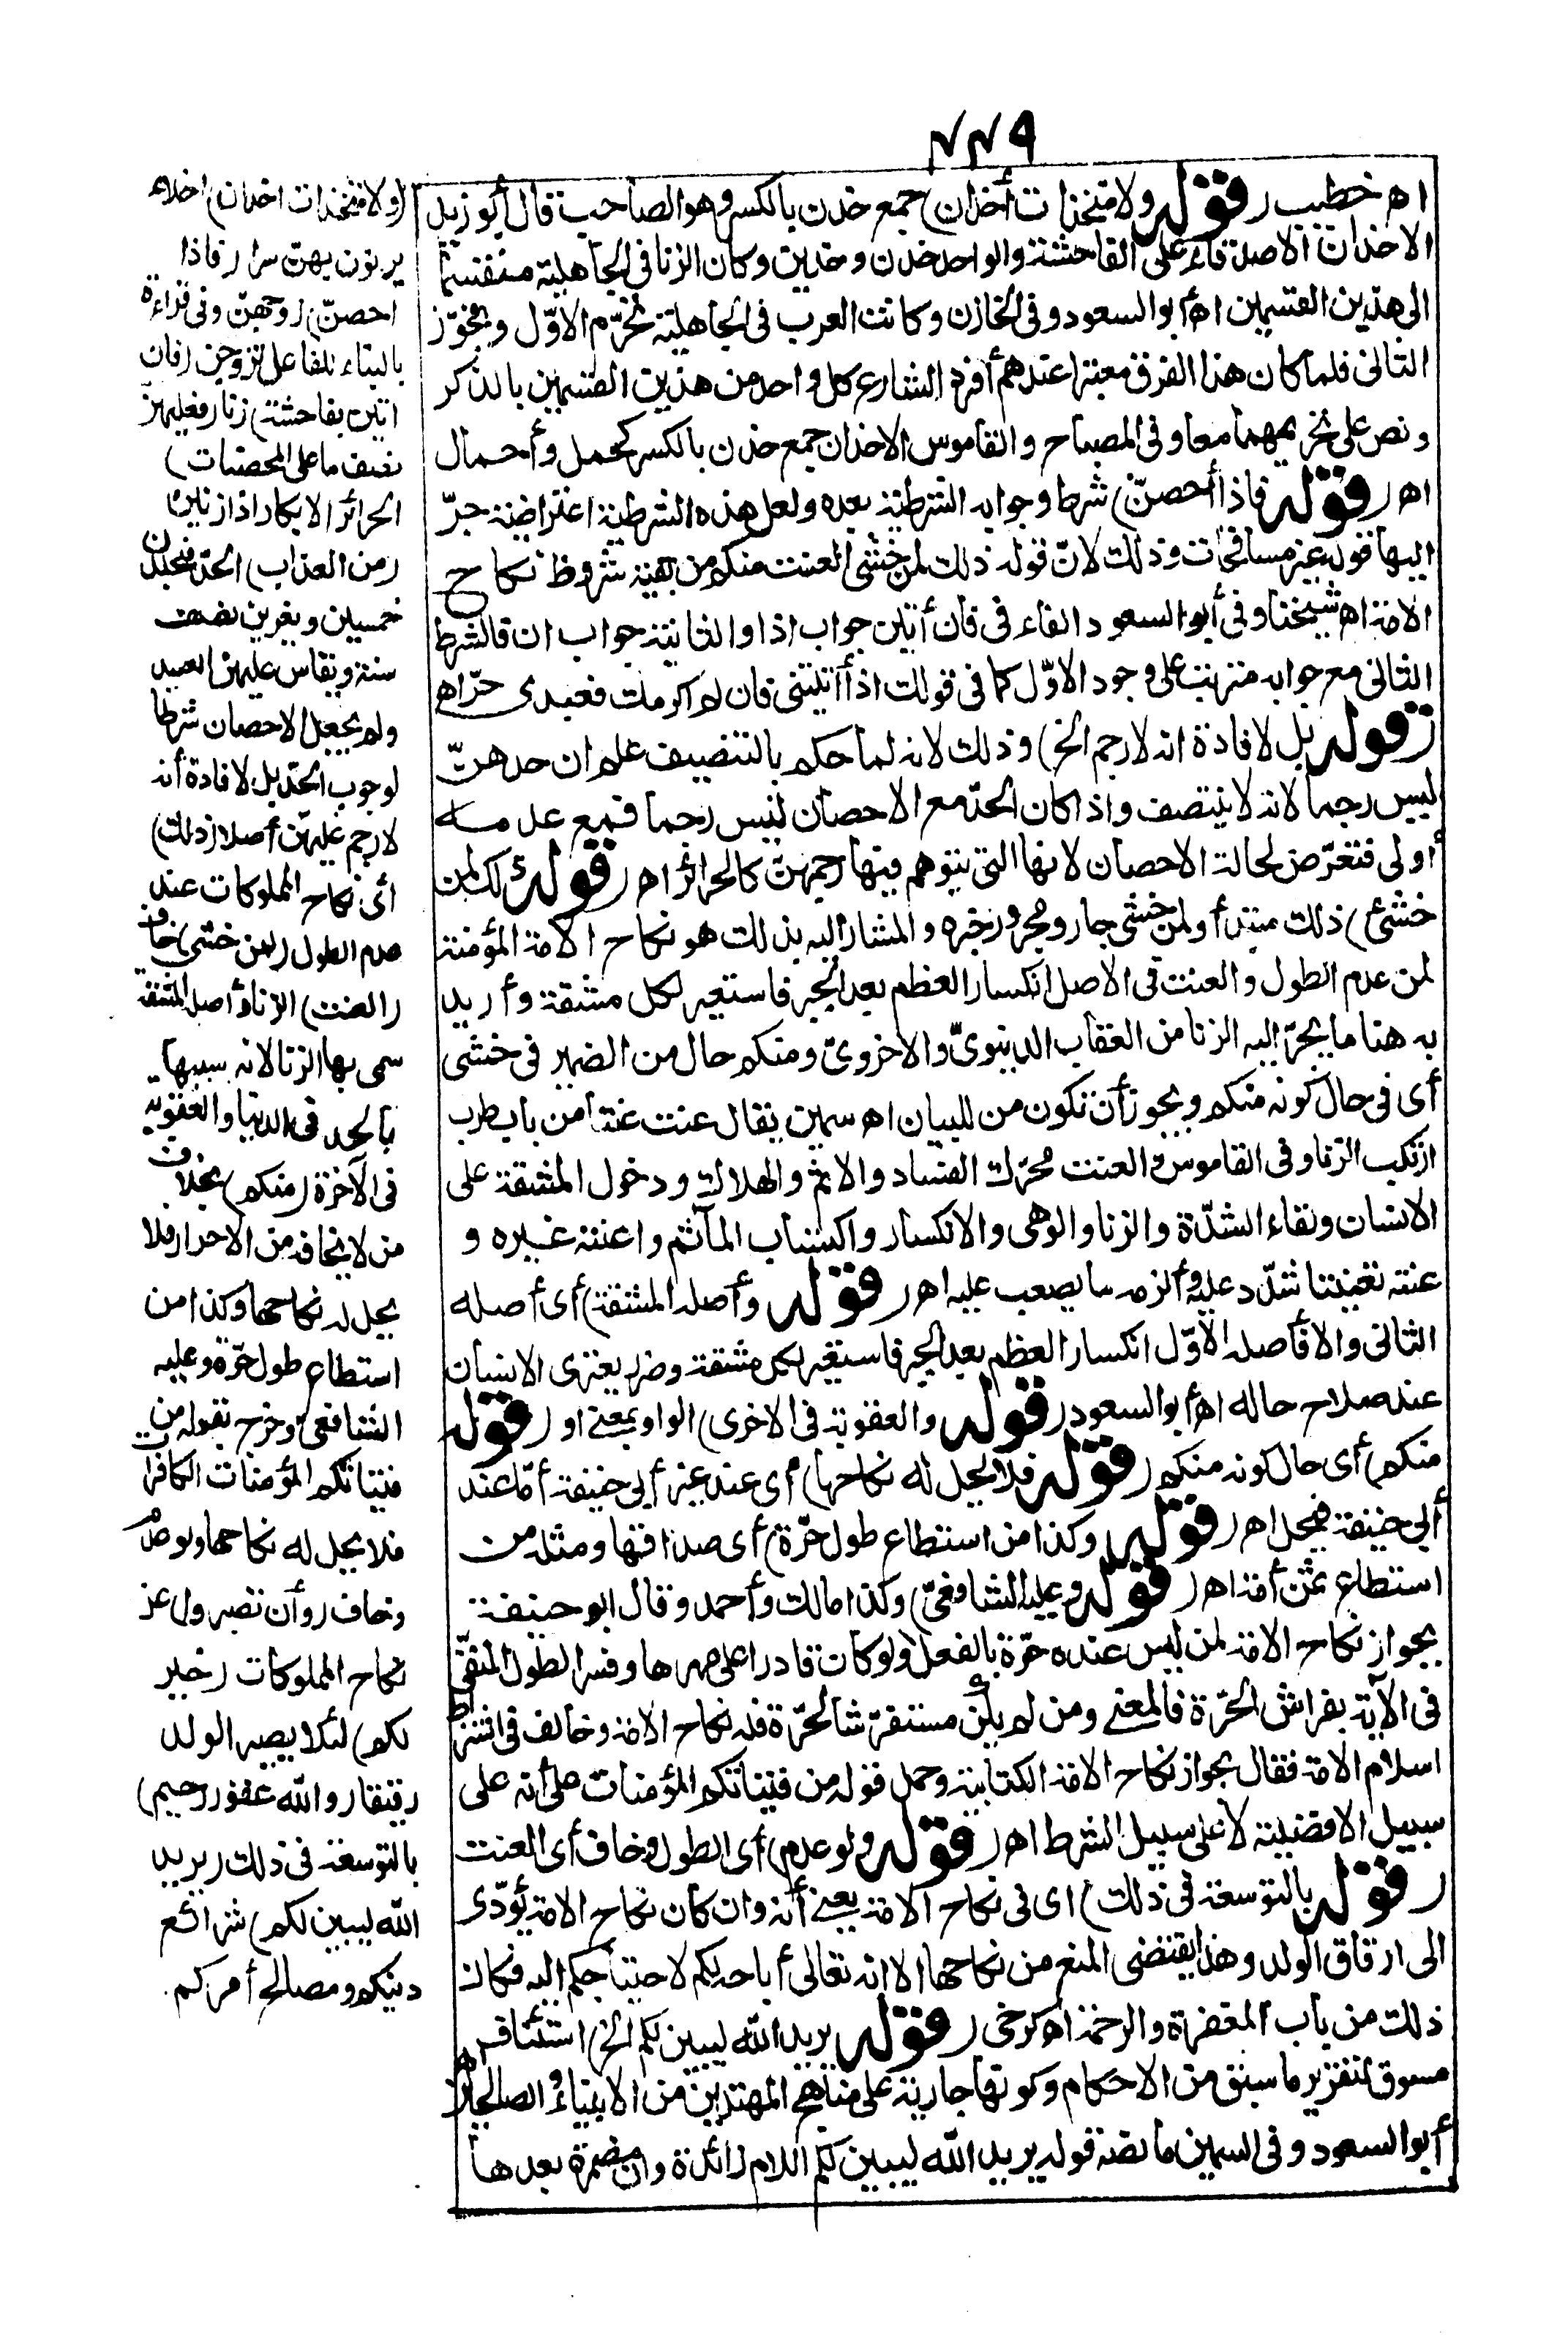 ٤٤٩
اه خطيب (قوله ولا متخذات أخدان) جمع خدن بالكسر وهو الصاحب قال أبو زيد
الاخدان الاصدقاء على الفاحشة والواحد خدن وخدين وكان الزنا في الجاهلية منقسما
الى هذين القسمين اه أبو السعود وفى الخازن وكانت العرب فى الجاهلية تحرّم الاوّل وتجوّز
الثانى فلما كان هذا الفرق معتبرا عندهم أفرد الشارع كل واحد من هذين القسمين بالذكر
ونص على تحريمهما معا وفى المصباح والقاموس الاخدان جمع خدن بالكسر كحمل وأحمال
اه (قوله فاذا أحصنّ) شرط وجوابه الشرطية بعده ولعل هذه الشرطية اعتراضية جرّ
اليها قوله غير مسافحات وذلك لانّ قوله ذلك لمن خشى العنت منكم من بقية شروط نكاح
الامة اه شيخنا وفى أبو السعود الفاء فى فان أتين جواب اذا والثانية جواب ان فالشرط
الثانى مع جوابه مترتب على وجود الاوّل كما فى قولك اذا أتيتنى فان لم أكرمك فعبدى حرّ اه
(قوله بل لافادة انه لا رجم الخ) وذلك لانه لما حكم بالتنصيف علم ان حدهنّ
ليس رجما لانه لا ينتصف واذا كان الحدّ مع الاحصان ليس رجما فمع عدمه
أولى فتعرّض لحالة الاحصان لانها التى يتوهم فيها رجمهنّ كالحرائر اه (قوله ذلك لمن
خشى) ذلك مبتدأ ولمن خشى جار ومجرور خبره والمشار اليه بذلك هو نكاح الامة المؤمنة
لمن عدم الطول والعنت فى الاصل انكسار العظم بعد الجبر فاستعير لكل مشقة وأريد
به هنا ما يجرّ اليه الزنا من العقاب الدينوىّ والاخروىّ ومنكم حال من الضمير فى خشى
أى فى حال كونه منكم ويجوز أن تكون من للبيان اه سمين يقال عنت عنتا من باب طرب
ارتكب الزنا وفى القاموس والعنت محرّك الفساد والاثم والهلاك ودخول المشقة على
الانسان ولقاء الشدّة والزنا والوهى والانكسار واكتساب المآثم واعنته غيره و
عنته تعنيتا شدّد عليه وألزمه ما يصعب عليه اه (قوله وأصله المشقة) أى أصله
الثانى والا فأصله الأوّل انكسار العظم بعد الجبر فاستعير لكل مشقة وضرر يعترى الانسان
عند صلاح حاله اه أبو السعود (قوله والعقوبة فى الاخرى) الواو بمعنى او (قوله
منكم) أى حال كونه منكم (قوله فلا يحل له نكاحها) أى عند غير أبى حنيفة أمّا عند
أبى حنيفة فيحل اه (قوله وكذا من استطاع طول حرّة) أى صداقها ومثله من
استطاع ثمن أمة اه (قوله وعليه الشافعىّ) وكذا مالك وأحمد وقال ابو حنيفة
بجواز نكاح الامة لمن ليس عنده حرّة بالفعل ولو كان قادرا على مهرها وفسر الطول المنفىّ
فى الآية بفراش الحرّة فالمعنى ومن لم يكن مستفرشا لحرّة فله نكاح الامة وخالف فى اشتراط
اسلام الامة فقال بجواز نكاح الامة الكتابية وحمل قوله من فتياتكم المؤمنات على أنه على
سبيل الافضلية لا على سبيل الشرط اه (قوله ولو عدم) أى الطول وخاف أى العنت
(قوله بالتوسعة فى ذلك) اى فى نكاح الامة يعنى أنه وان كان نكاح الامة يؤدّى
الى ارقاق الولد وهذا يقتضى المنع من نكاحها الا انه تعالى أباحه لكم لاحتياجكم اليه فكان
ذلك من باب المغفرة والرحمة اه كرخى (قوله يريد الله ليبين لكم الخ) استئناف
مسوق لتقرير ما سبق من الاحكام وكونها جارية على مناهج المهتدين من الانبياء والصالحين اه
أبو السعود وفى السمين ما نصه قوله يريد الله ليبين لكم اللام زائدة وان مضمرة بعدها
(ولا متخذات اخدان) اخلاء
يزنون بهنّ سرا (فاذا
احصنّ) زوجهنّ وفى قراءة
بالبناء للفاعل تزوجن (فان
اتين بفاحشة) زنا (فعليهنّ
نصف ما على المحصنات)
الحرائر الابكار اذا زنين
(من العذاب) الحدّ فيجلدن
خمسين ويغربن نصف
سنة ويقاس عليهن العبيد
ولم يجعل الاحصان شرطا
لوجوب الحدّ بل لافادة أنه
لا رجم عليهنّ أصلا (ذلك)
أى نكاح المملوكات عند
عدم الطول (لمن خشى) خاف
(العنت) الزنا وأصله المشقة
سمى بها الزنا لانه سببها
بالحد فى الدنيا والعقوبة
فى الآخرة (منكم) بخلاف
من لا يخافه من الاحرار فلا
يحل له نكاحها وكذا من
استطاع طول حرّة وعليه
الشافعىّ وخرج بقوله من
فتياتكم المؤمنات الكافرات
فلا يحل له نكاحها ولو عدم
وخاف (وأن تصبروا) عن
نكاح المملوكات (خير
لكم) لئلا يصير الولد
رقيقا (والله غفور رحيم)
بالتوسعة فى ذلك (يريد
الله ليبين لكم) شرائع
دينكم ومصالح أمركم.